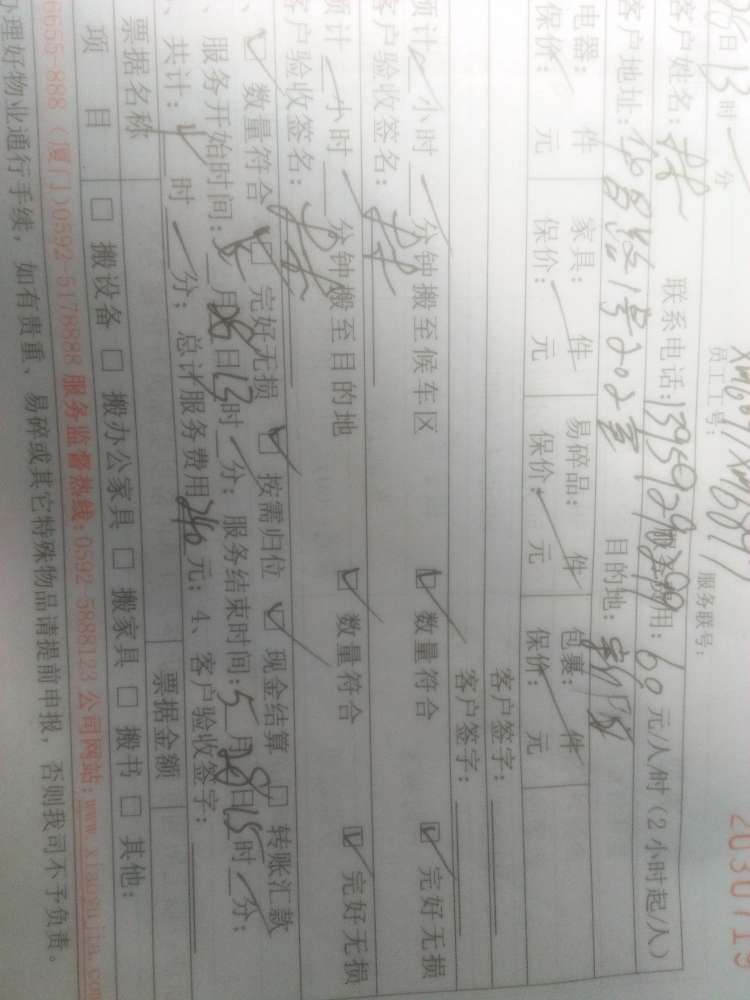 2030719
服务联号：
员工工号：
28日13时 分
客户姓名： 联系电话：13959292299 服务费用：60元/人/时（2小时起/人）
客户地址： 1号202室 目的地：
电器： 件 家具： 件 易碎品： 件 包裹： 件
保价： 元 保价： 元 保价： 元 保价： 元
客户签字：
客户签字：
预计 小时 分钟搬至候车区 ☑ 数量符合 ☑ 完好无损
客户验收签名：
预计 小时 分钟搬至目的地 ☑ 数量符合 ☑ 完好无损
客户验收签名：
☑ 数量符合 ☑ 完好无损 ☑ 按需归位 ☑ 现金结算 □ 转账汇款
服务开始时间：5月28日13时 分；服务结束时间：5月28日15时 分；
共计：4时 分；总计服务费用240元；4、客户验收签字：
票据名称 票据金额
项 目 □ 搬设备 □ 搬办公家具 □ 搬家具 □ 搬书 □ 其他：
6655-888（厦门）0592-5178888 服务监督热线：0592-5888123 公司网站：www.xiaoyujia.com
办理好物业通行手续，如有贵重、易碎或其它特殊物品请提前申报，否则我司不予负责。